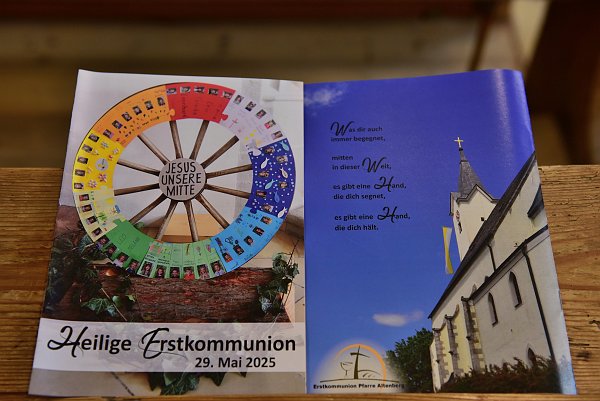 JESUS
UNSERE
MITTE
Heilige Erstkommunion
29. Mai 2025
Was dir auch
immer begegnet,
mitten
in dieser Welt,
es gibt eine Hand,
die dich segnet,
es gibt eine Hand,
die dich hält.
Erstkommunion Pfarre Altenberg